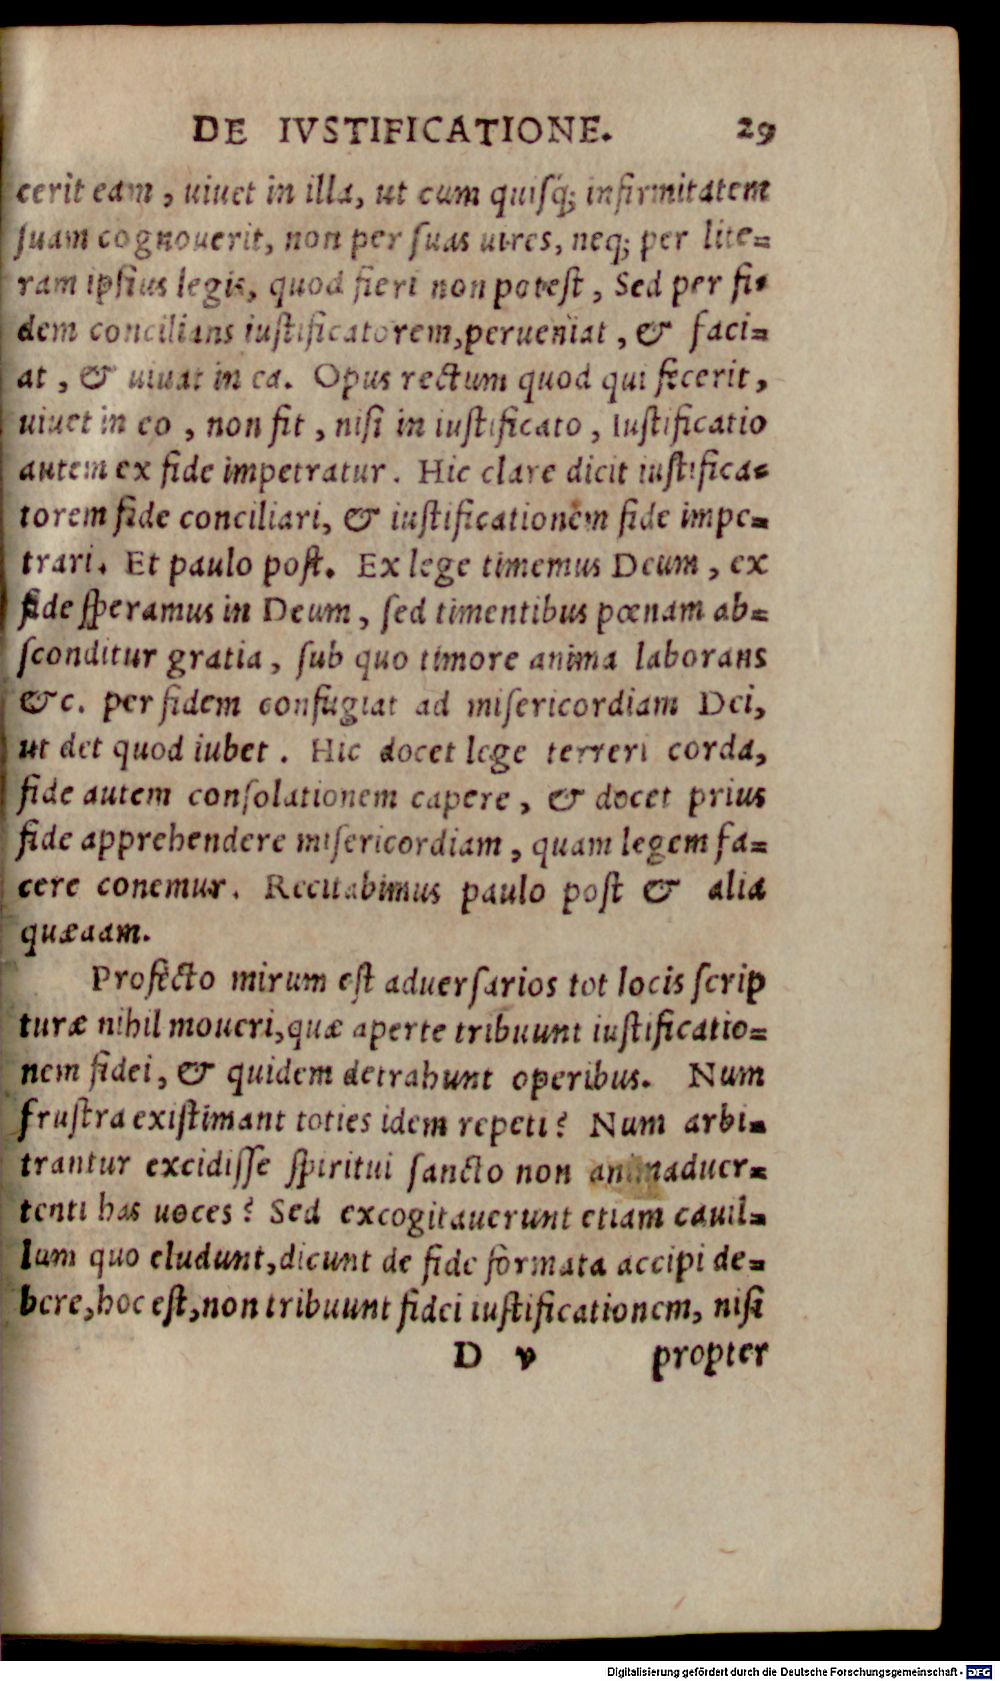 DE IVSTIFICATIONE. 29
cerit eam, uiuet in illa, ut cum quisq; infirmitatem
suam cognouerit, non per suas uires, neq; per lite=
ram ipsius legis, quod fieri non potest, Sed per fi=
dem concilians iustificatorem, perueniat, & faci=
at, & uiuat in ea. Opus rectum quod qui fecerit,
uiuet in eo, non fit, nisi in iustificato, Iustificatio
autem ex fide impetratur. Hic clare dicit iustifica=
torem fide conciliari, & iustificationem fide impe=
trari. Et paulo post. Ex lege timemus Deum, ex
fide speramus in Deum, sed timentibus pœnam ab=
sconditur gratia, sub quo timore anima laborans
&c. per fidem confugiat ad misericordiam Dei,
ut det quod iubet. Hic docet lege terreri corda,
fide autem consolationem capere, & docet prius
fide apprehendere misericordiam, quam legem fa=
cere conemur. Recitabimus paulo post & alia
quædam.
Profecto mirum est aduersarios tot locis scrip
turæ nihil moueri, quæ aperte tribuunt iustificatio=
nem fidei, & quidem detrahunt operibus. Num
frustra existimant toties idem repeti? Num arbi=
trantur excidisse spiritui sancto non animaduer=
tenti has uoces? Sed excogitauerunt etiam cauil=
lum quo eludunt, dicunt de fide formata accipi de=
bere, hoc est, non tribuunt fidei iustificationem, nisi
D v propter
Digitalisierung gefördert durch die Deutsche Forschungsgemeinschaft - DFG